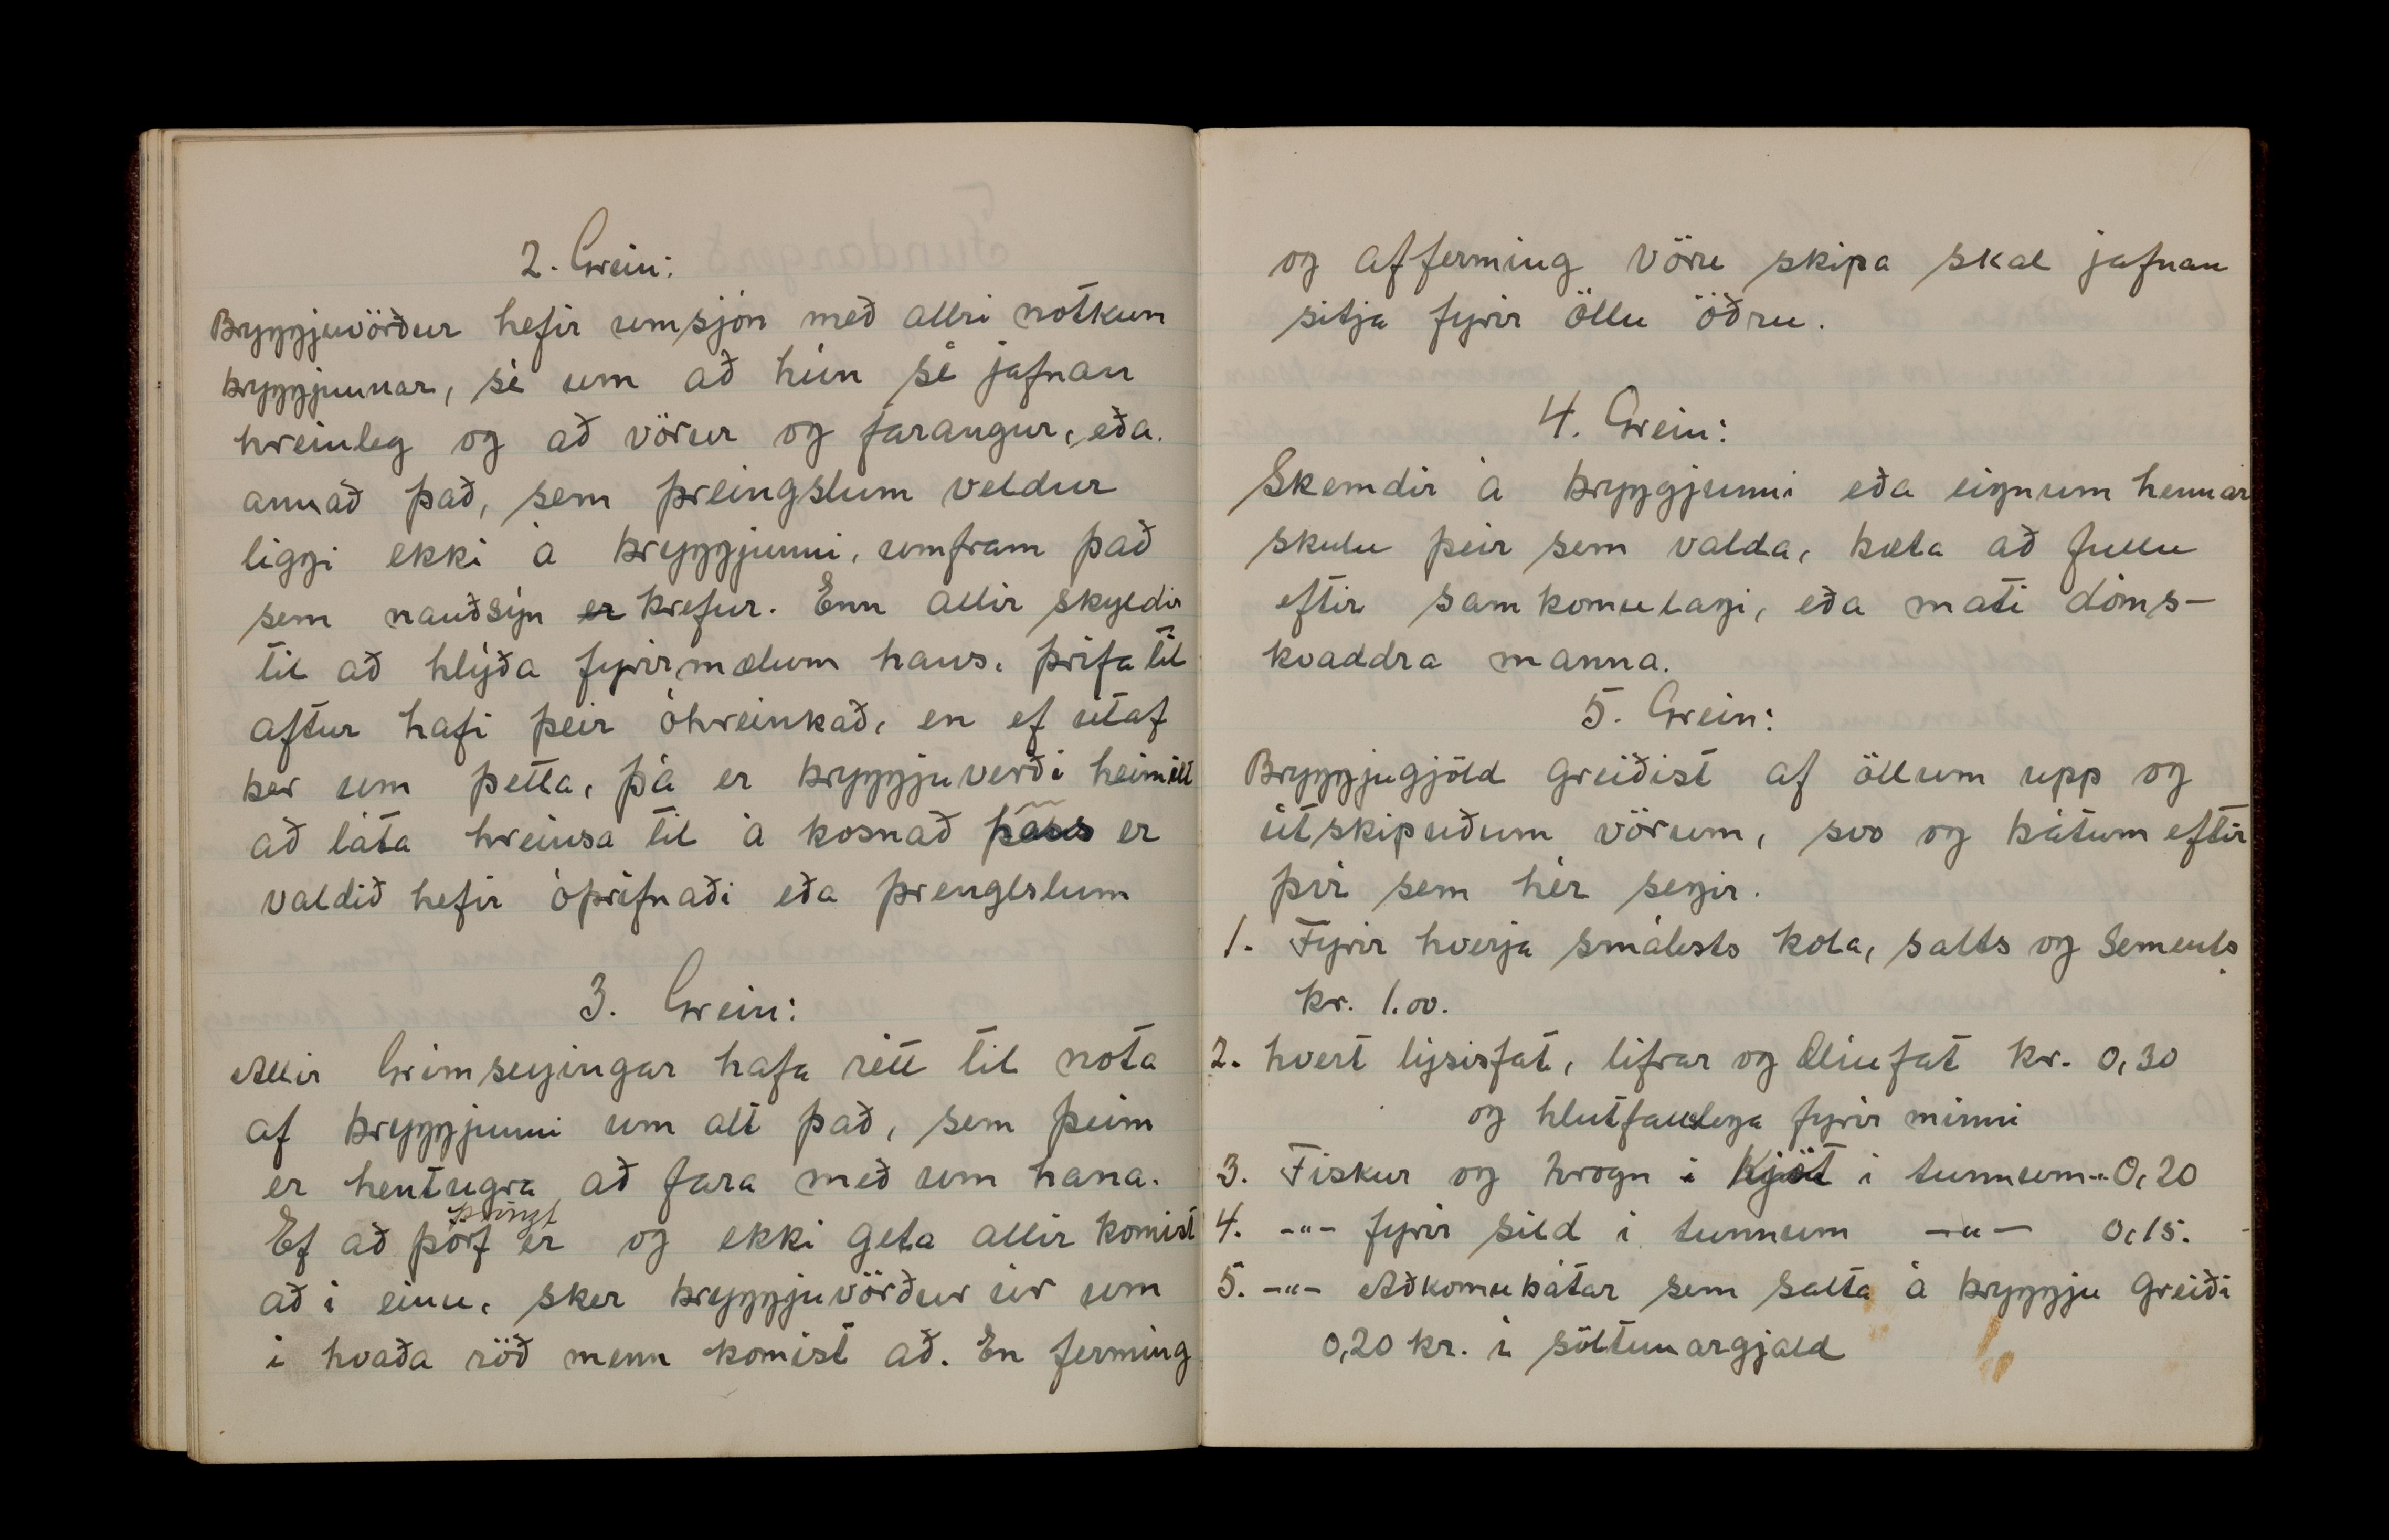 2. Grein:
Bryggjuvörður hefir umsjón með allri notkun
bryggjunnar, sé um að hún sé jafnan
hreinleg og að vörur og farangur, eða
annað það, sem þreingslum veldur
liggi ekki á bryggjunni, umfram það
sem nauðsýn er krefur. Enn allir skyldir
til að hlýða fyrirmælum hans, þrífa til
aftur hafi þeir óhreinkað, en ef útaf
ber um þetta, þá er bryggjuverði heimilt
að láta hreinsa til á kosnað þess er
valdið hefir óþrifnaði eða þrenglslum
3. Grein:
Allir Grímseyingar hafa rétt til nota
af bryggjunni um alt það, sem þeim
er hentugra að fara með um hana.
þröngt
Ef að þörf er og ekki geta allir komist
að í einu, sker bryggjuvörður úr um
í hvaða röð menn komist að. En ferming
og afferming vöru skipa skal jafnan
sitja fyrir öllu öðru.
4. Grein:
Skemdir á bryggjunni eða eignum hennar
skulu þeir sem valda, bæta að fullu
eftir samkomulagi, eða mati dóms-
kvaddra manna.
5. Grein:
Bryggjugjöld greiðist af öllum upp og
útskipuðum vörum, svo og bátum eftir
því sem hér segir.
1. Fyrir hverja smálests kola, salts og Sements
kr. 1.00.
2. hvert lýsisfat, lifrar og Olíufat kr. 0,30
og hlutfallslega fyrir minni
3. Fiskur og hrogn í Kjöt í tunnum -"- 0,20
4. -"- fyrir síld í tunnum -"- 0,15.
5. -"- Aðkomubátar sem salta á bryggju greiði
0,20 kr. í söltunargjald